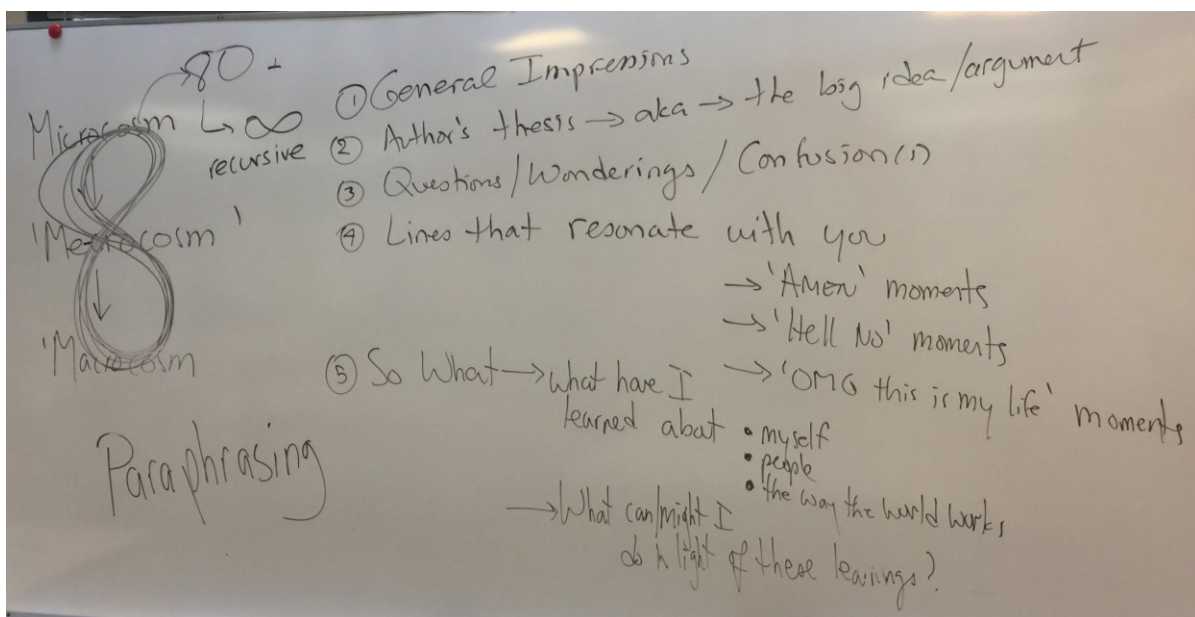 80
Microcosm ↳ ∞
recursive
'Mesocosm'
'Macrocosm
Paraphrasing
① General Impressions
② Author's thesis → aka → the big idea/argument
③ Questions/Wonderings/Confusion(s)
④ Lines that resonate with you
→ 'Amen' moments
→ 'Hell No' moments
→ 'OMG this is my life' moments
⑤ So What → what have I
learned about • myself
• people
• the way the world works
→ What can/might I
do in light of these learnings?